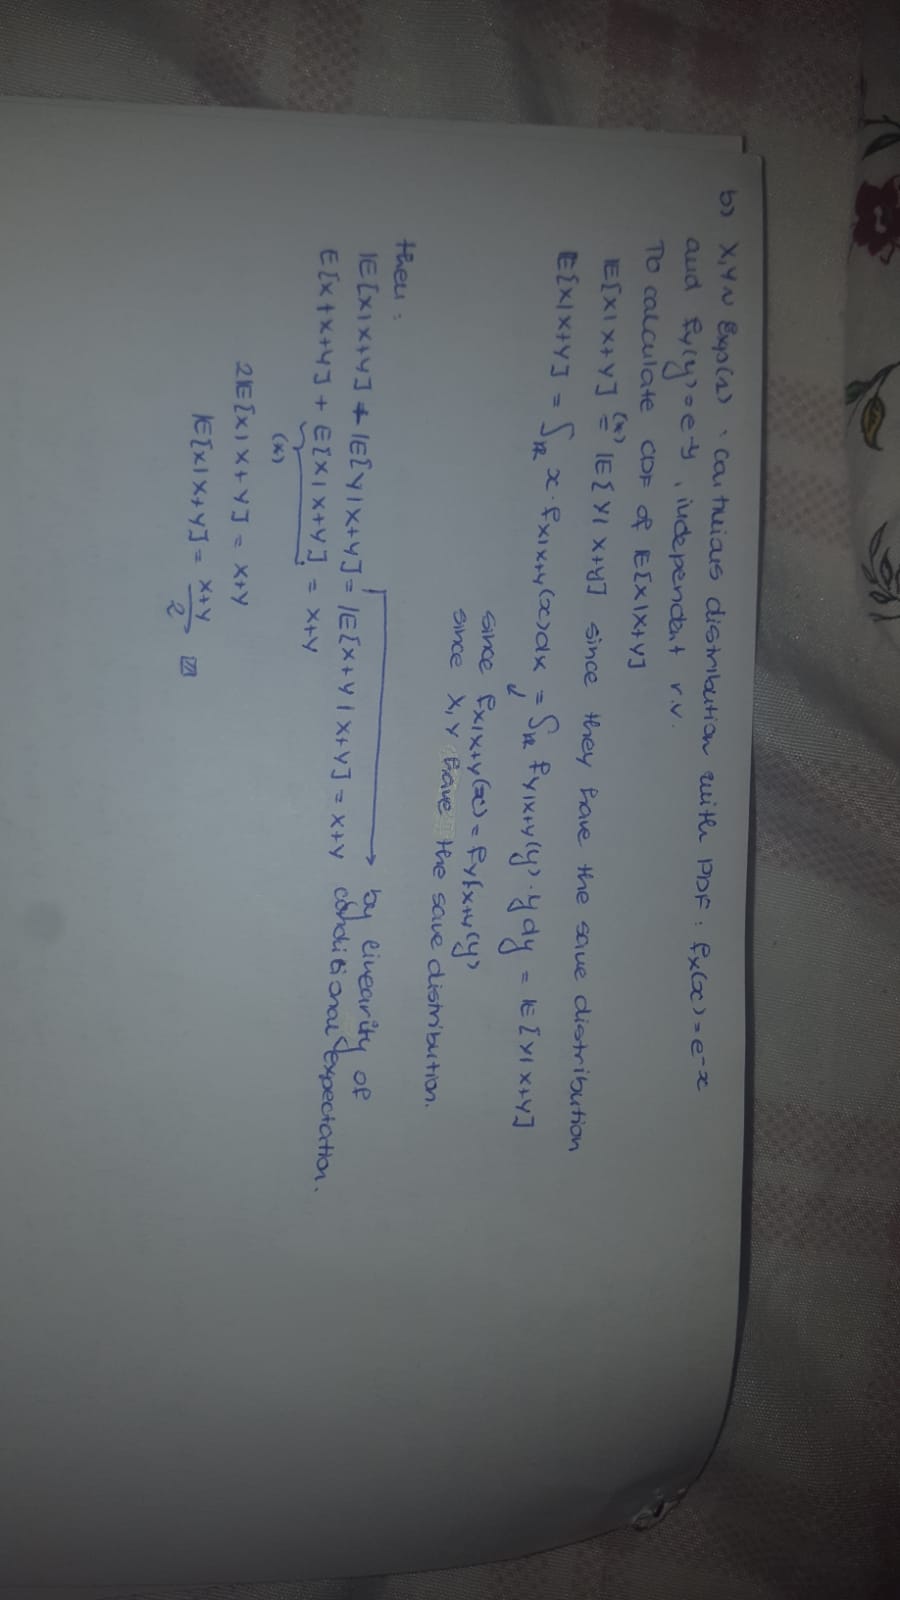 b) X,Y ~ Exp(1) : continious distribution with PDF : fx(x) = e^-x
and fy(y) = e^-y, independent r.v.
To calculate CDF of E[X|X+Y]
E[X|X+Y] (*)= E[Y|X+Y] since they have the save distribution
E[X|X+Y] = ∫ℝ x · fx|x+y(x)dx = ∫ℝ fy|x+y(y) · y dy = E[Y|X+Y]
since fx|x+y(x) = fy|x+y(y)
since X,Y have the save distribution.
then :
E[X|X+Y] + E[Y|X+Y] = E[X+Y|X+Y] = X+Y
by linearity of
conditional expectation.
E[X+X+Y] + E[X|X+Y] = X+Y
(*)
2E[X|X+Y] = X+Y
E[X|X+Y] = X+Y/2